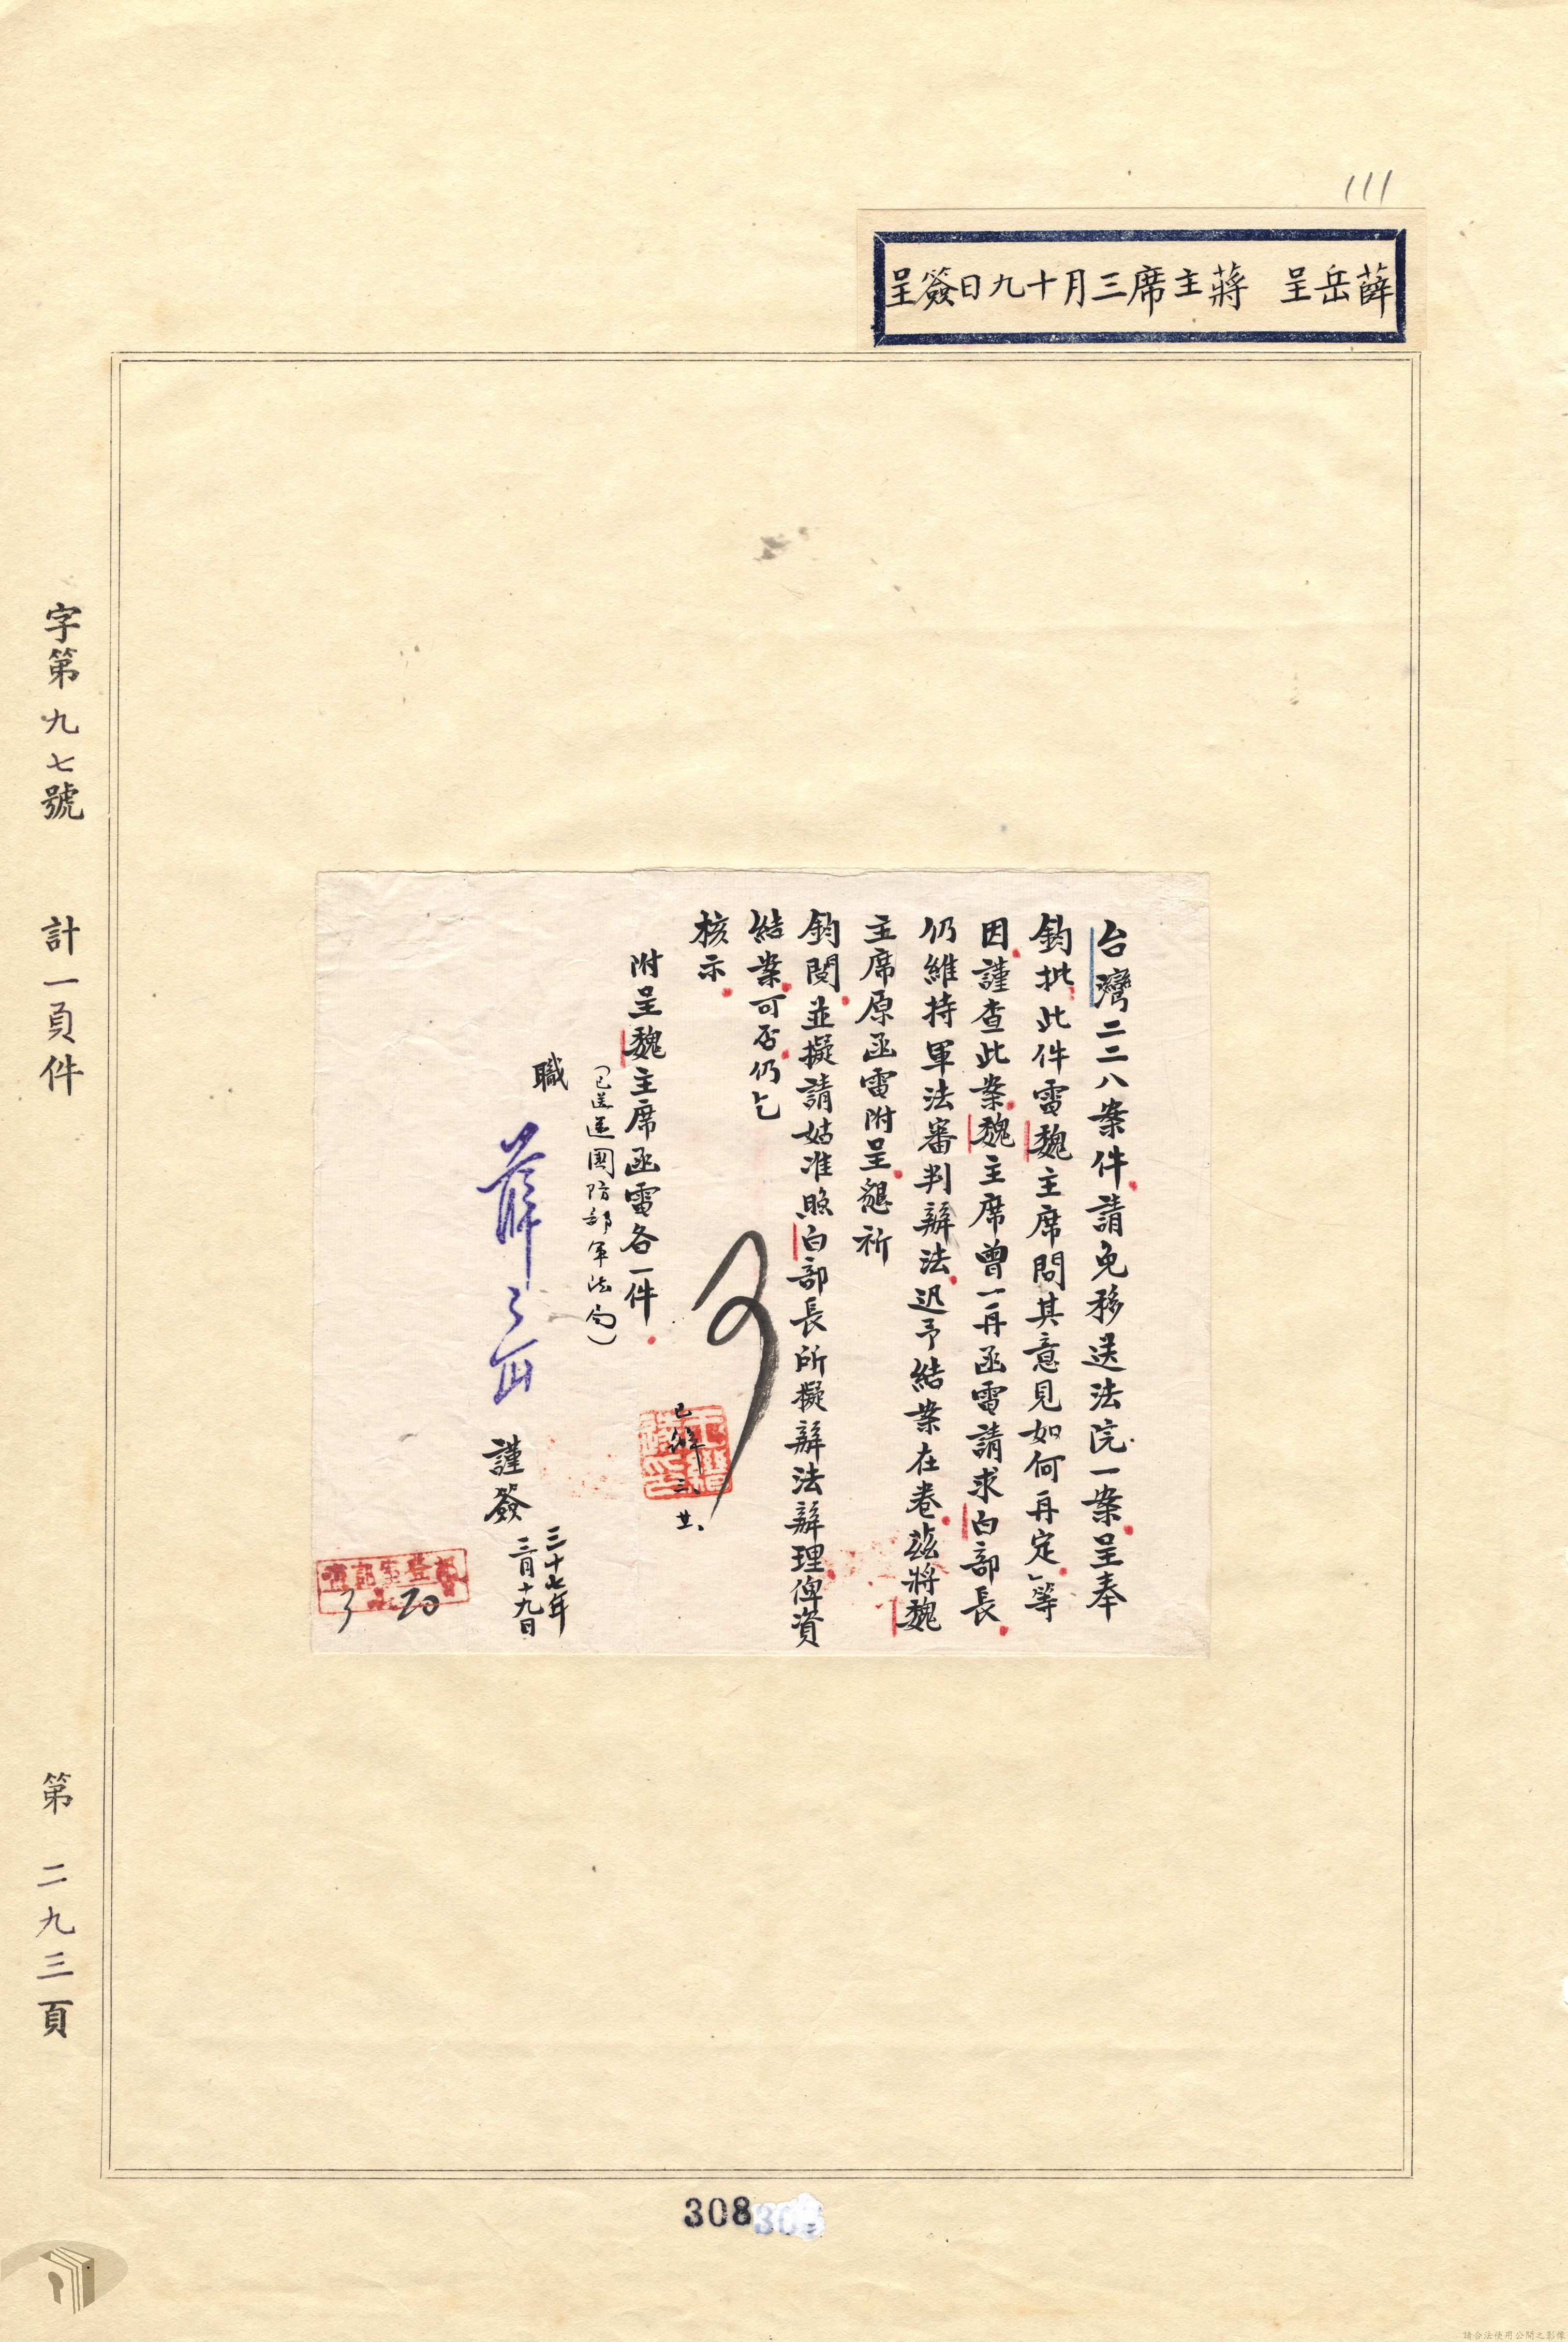 111
薛岳呈 蔣主席三月十九日簽呈
台灣二二八案件請免移送法院一案呈奉
鈞批此件電魏主席問其意見如何再定」等
因謹查此案魏主席曾一再函電請求白部長
仍維持軍法審判辦法迅予結案在卷茲將魏
主席原函電附呈懇祈
鈞閱並擬請姑准照白部長所擬辦法辦理俾資
結案可否仍乞
核示
附呈魏主席函電各一件
(已逕送國防部軍法局)
可
已辦 三 廿
職 薛岳 謹簽
三十七年
三月十九日
3 20
字第九七號 計一頁件 第二九三頁
308
請合法使用公開之影像